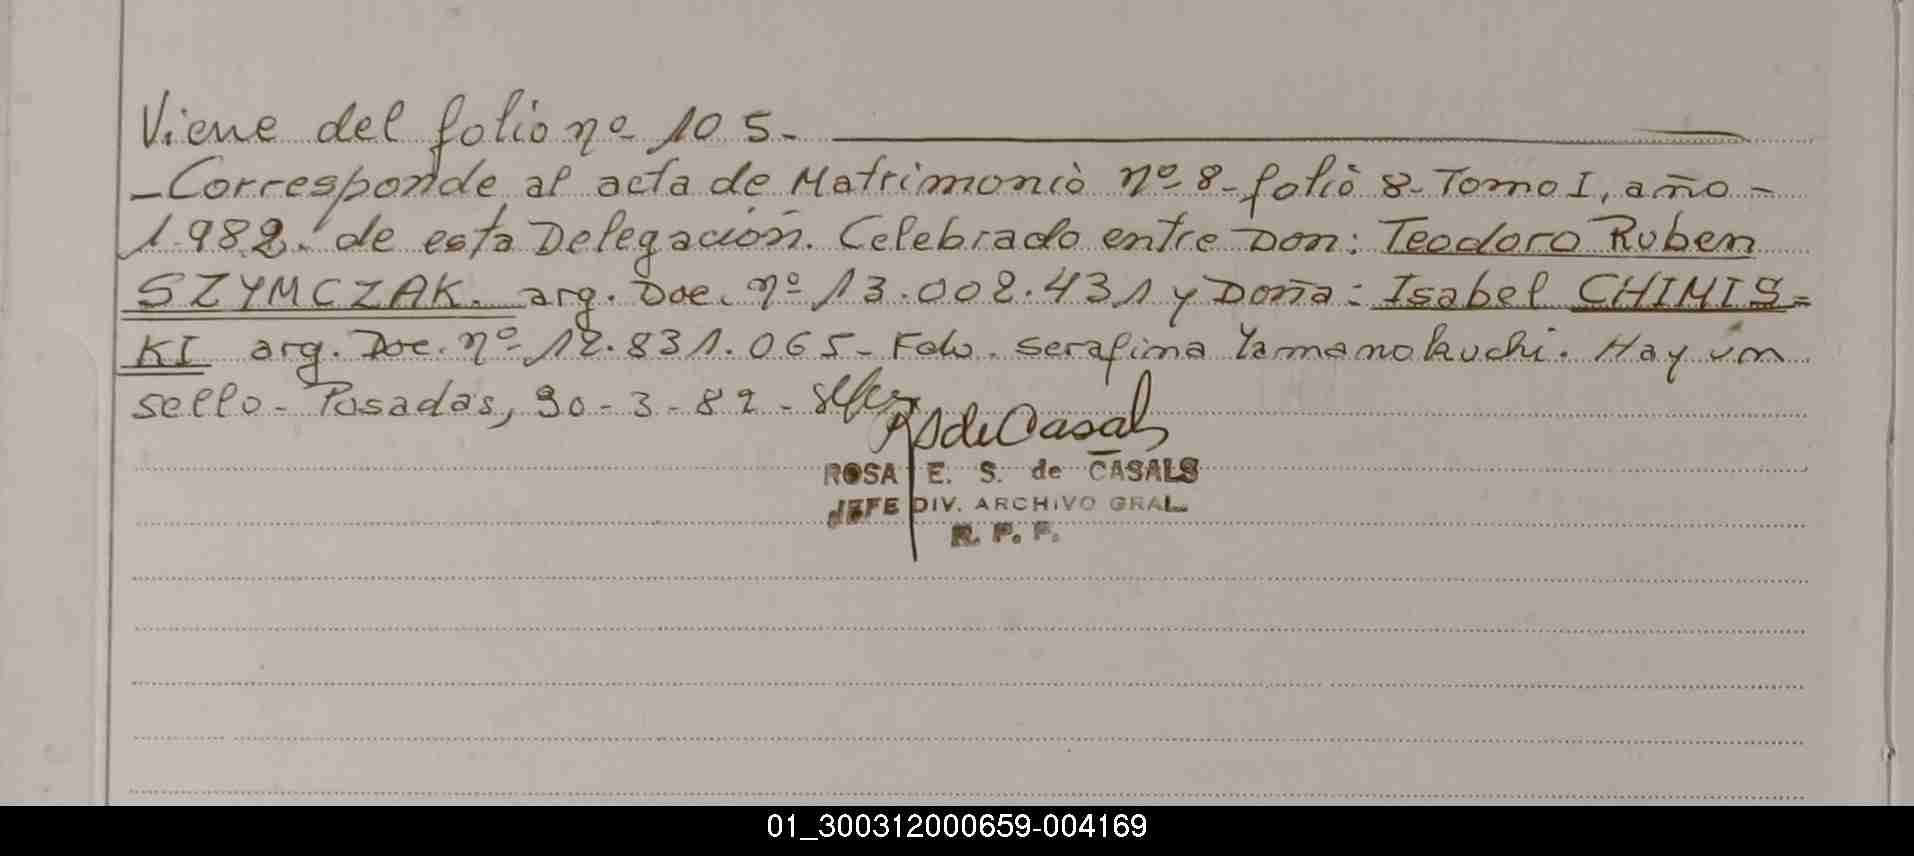 Viene del folio nº 105-
-Corresponde al acta de Matrimonio nº 8- folio 8- Tomo I, año-
1.982. de esta Delegación. Celebrado entre Don: Teodoro Ruben
SZYMCZAK. arg. Doc. nº 13.002.431 y Doña: Isabel CHIMIS=
KI arg. Doc. nº 12.831.065- Fdo. Serafina Yamanokuchi. Hay un
sello- Posadas, 30-3-82-
RSdeCasals
ROSA E. S. de CASALS
JEFE DIV. ARCHIVO GRAL.
R. P. P.
01_300312000659-004169